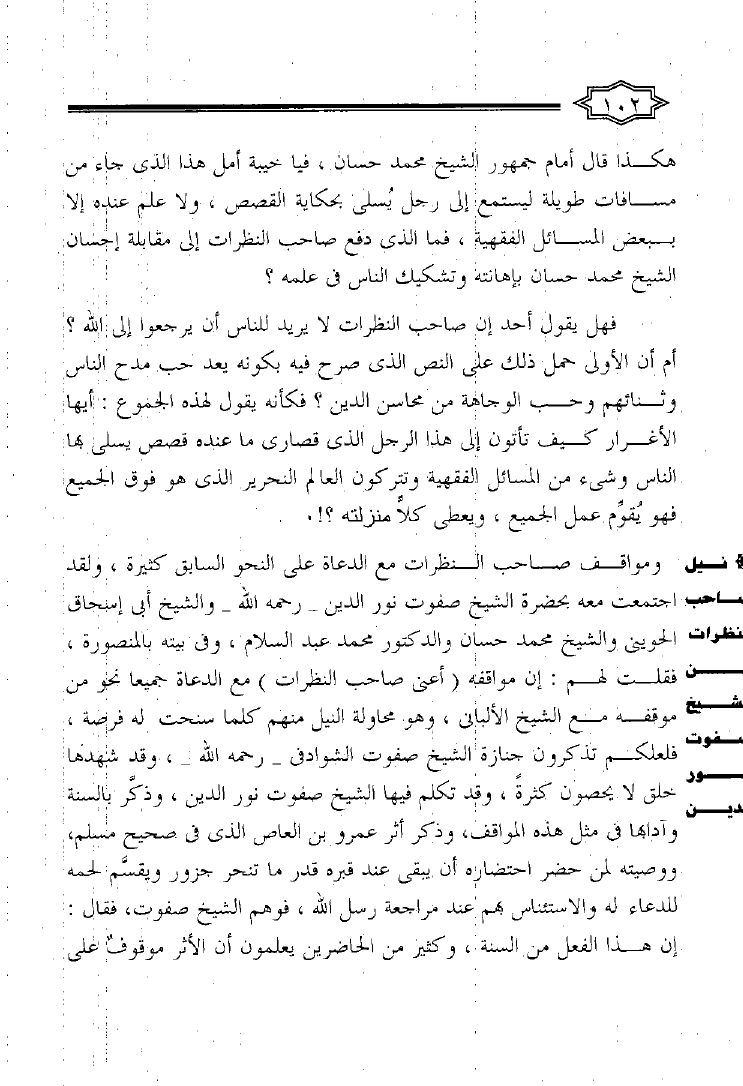 ١٠٢
هكذا قال أمام جمهور الشيخ محمد حسان ، فيا خيبة أمل هذا الذى جاء من
مسافات طويلة ليستمع إلى رجل يُسلى بحكاية القصص ، ولا علم عنده إلا
ببعض المسائل الفقهية ، فما الذى دفع صاحب النظرات إلى مقابلة إحسان
الشيخ محمد حسان بإهانته وتشكيك الناس فى علمه ؟
فهل يقول أحد إن صاحب النظرات لا يريد للناس أن يرجعوا إلى الله ؟
أم أن الأولى حمل ذلك على النص الذى صرح فيه بكونه يعد حب مدح الناس
وثنائهم وحب الوجاهة من محاسن الدين ؟ فكأنه يقول لهذه الجموع : أيها
الأغرار كيف تأتون إلى هذا الرجل الذى قصارى ما عنده قصص يسلى بها
الناس وشىء من المسائل الفقهية وتتركون العالم النحرير الذى هو فوق الجميع
فهو يُقوِّم عمل الجميع ، ويعطى كلاًّ منزلته ؟!٠
ومواقف صاحب النظرات مع الدعاة على النحو السابق كثيرة ، ولقد
اجتمعت معه بحضرة الشيخ صفوت نور الدين _ رحمه الله _ والشيخ أبى إسحاق
الحوينى والشيخ محمد حسان والدكتور محمد عبد السلام ، وفى بيته بالمنصورة ،
فقلت لهم : إن مواقفه ( أعنى صاحب النظرات ) مع الدعاة جميعا نحو من
موقفه مع الشيخ الألبانى ، وهو محاولة النيل منهم كلما سنحت له فرصة ،
فلعلكم تذكرون جنازة الشيخ صفوت الشوادفى _ رحمه الله _ ، وقد شهدها
خلق لا يحصون كثرةً ، وقد تكلم فيها الشيخ صفوت نور الدين ، وذكَّر بالسنة
وآدابها فى مثل هذه المواقف، وذكر أثر عمرو بن العاص الذى فى صحيح مسلم،
ووصيته لمن حضر احتضاره أن يبقى عند قبره قدر ما تنحر جزور ويقسَّم لحمه
للدعاء له والاستئناس بهم عند مراجعة رسل الله ، فوهم الشيخ صفوت، فقال :
إن هذا الفعل من السنة ، وكثير من الحاضرين يعلمون أن الأثر موقوفٌ على
نيل
ـاحب
نظرات
ـن
شيخ
ـفوت
ـور
ـدين